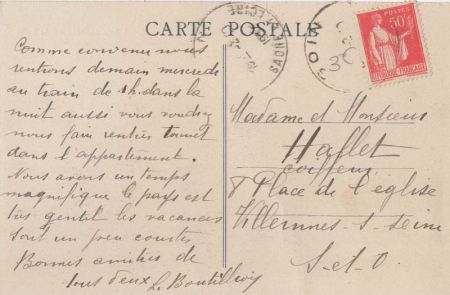 CARTE POSTALE
SAONE-ET-LOIRE
50c
POSTES
RÉPUBLIQUE FRANÇAISE
Comme convenu nous
rentrons demain mercredi
au train de 1h. dans la
nuit aussi vous voudrez
nous fair rentrer
dans l'appartement.
Nous avons un temps
magnifique le pays est
très gentil les vacances
sont un peu courtes
Bonnes amitiés de
tous deux
Madame et Monsieur
Hallet
coiffeur
8 Place de l'église
Villennes-s-Seine
S-et-O.